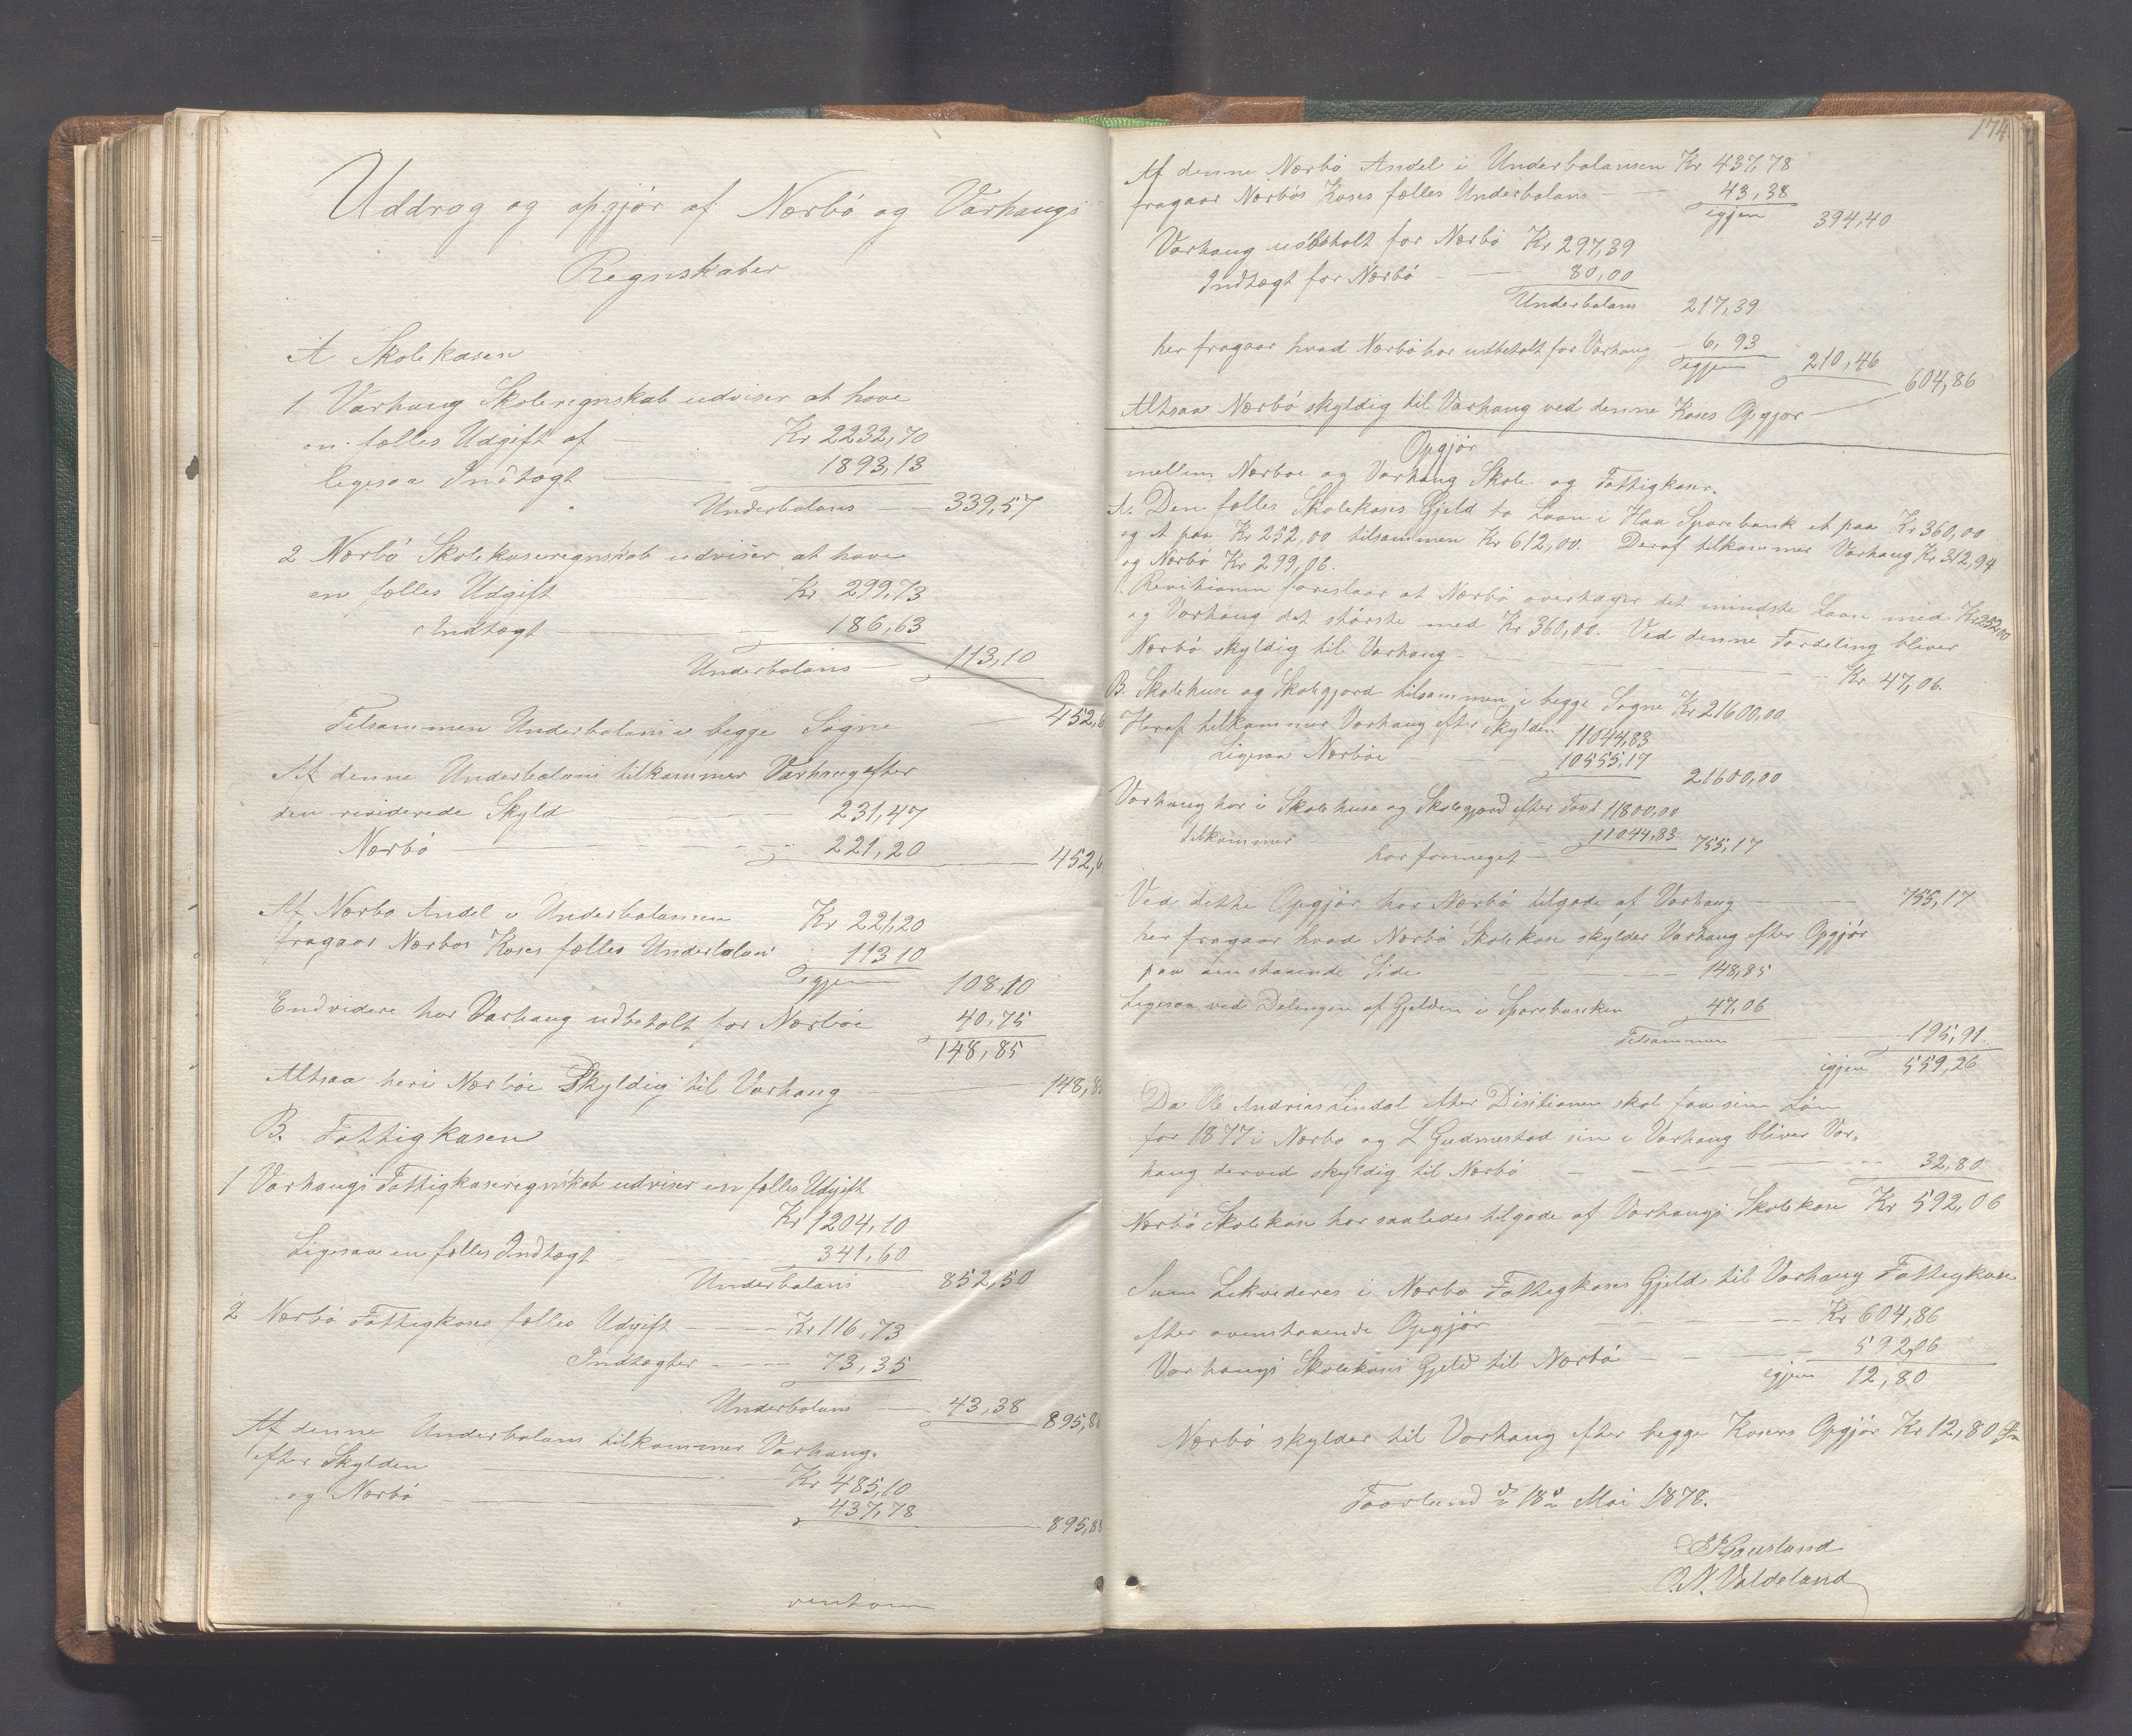 Uddrag og opgjør af Nærbö og Varhaugs
Regnskaber
A Skolekasen
1 Varhaug Skoleregnskab udviser at have
en fælles Udgift af Kr 2232,70
ligesaa Indtægt 1893,13
Underbalans 339,57
2 Nærbö Skolekaseregnskab udviser at have
en fælles Udgift Kr 299,73
Indtægt 186,63
Underbalans 113,10
Tilsammen Underbalans i begge Sogne 452,6
Af denne Underbalans tilkommer Varhaug efter
den reviderede Skyld 231,47
Nærbö 221,20 452,6
Af Nærbø Andel i Underbalansen Kr 221,20
fragaar Nærbøs Kases fælles Underbalans 113 10
igjen 108,10
Endvidere har Varhaug udbetalt for Nærbøe 40,75
148,85
Altsaa heri Nærböe Skyldig til Varhaug 148,8
B. Fattigkasen
1 Varhaugs Fattigkaseregnskab udviser en fælles Udgift
Kr 1204,10
Ligesaa en fælles Indtægt 341,60
Underbalans 852,50
2 Nærbö Fattigkases fælles Udgift Kr 116,73
Indtægter 73,35
Underbalans 43,38 895,88
Af denne Underbalans tilkommer Varhaug
efter Skylden Kr 485,10
og Nærbö 437,78
895,88
vend om
174
Af denne Nærbö Andel i Underbalansen Kr 437,78
fragaar Nærbös Kases fælles Underbalans 43,38
igjen 394,40
Varhaug udbetalt for Nærbö Kr 297,39
Indtægt for Nærbö 80,00
Underbalans 217,39
her fragaar hvad Nærbö har udbetalt for Varhaug 6,93
igjen 210,46 604,86
Altsaa Nærbö skyldig til Varhaug ved denne Kases Opgjør
Opgjör
mellem Nærboe og Varhaug Skole og Fattigkaser.
A. Den fælles Skolekases Gjeld to Laan i Haa Sparebank et paa Kr 360,00
og et paa Kr 252,00 tilsammen Kr 612,00. Deraf tilkommer Varhaug Kr 312,94
og Nærbö Kr 299,06.
Revitionen foreslaar at Nærbö overtager det mindste Laan med Kr 252,00
og Varhaug det største med Kr 360,00. Ved denne Fordeling bliver
Nærbö skyldig til Varhaug Kr 47,06.
B. Skolehuse og Skolegjord tilsammen i begge Sogne Kr 21600,00
Heraf tilkommer Varhaug efter Skylden 11044,83
Ligesaa Nærböe 10555,17
21600,00
Varhaug har i Skolehuse og Skolegjord efter Taxt 11800,00
tilkommer 11044,83
har formeget 755,17
Ved dette Opgjör har Nærbö tilgode af Varhaug 755,17
her fragaar hvad Nærbö Skolekase skylder Varhaug efter Opgjör
paa omstaaende Side 148,85
Ligesaa ved Delingen af Gjelden i Sparebanken 47,06
Tilsammen 195,91
igjen 559,26
Da Ole Andrias Lindal efter Disitionen skal faa sin Løn
for 1877 i Nærbø og L Gudmestad sin i Varhaug bliver Var-
haug derved skyldig til Nærbö 32,80
Nærbö Skolekase har saaledes tilgode af Varhaugs Skolekase Kr 592,06
Som Likvideres i Nærbø Fattigkases Gjeld til Varhaug Fattigkase
efter ovenstaaende Opgjör Kr 604,86
Varhaugs Skolekases Gjeld til Nærbö 592,06
igjen 12,80
Nærbö skylder til Varhaug efter begge Kasers Opgjör Kr 12,80
18 Mai 1878.
O.N. Valdeland